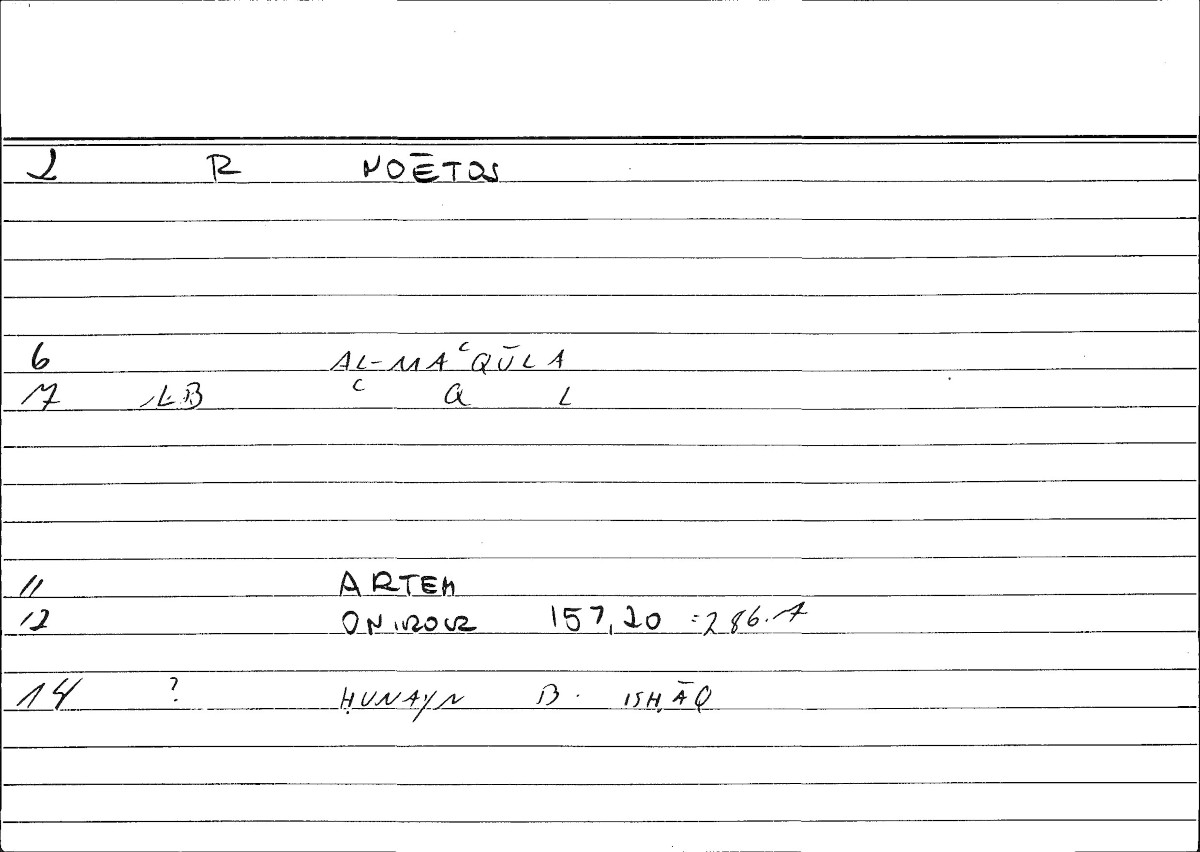 2 R NOĒTOS
6 AL-MAʿQŪLA
7 1.B ʿ Q L
11 ARTEM
12 ONIROCR 157,20 =286.7
14 ? ḤUNAYN B. ISḤĀQ